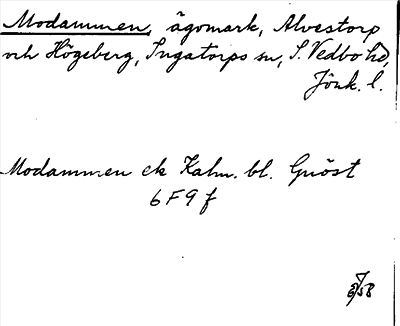 Modammen, ägomark, Alvestorp
och Högeberg, Ingatorps sn, S. Vedbo hd,
Jönk. l.
Modammen ek Kalm. bl. Gnöst
6 F 9 f